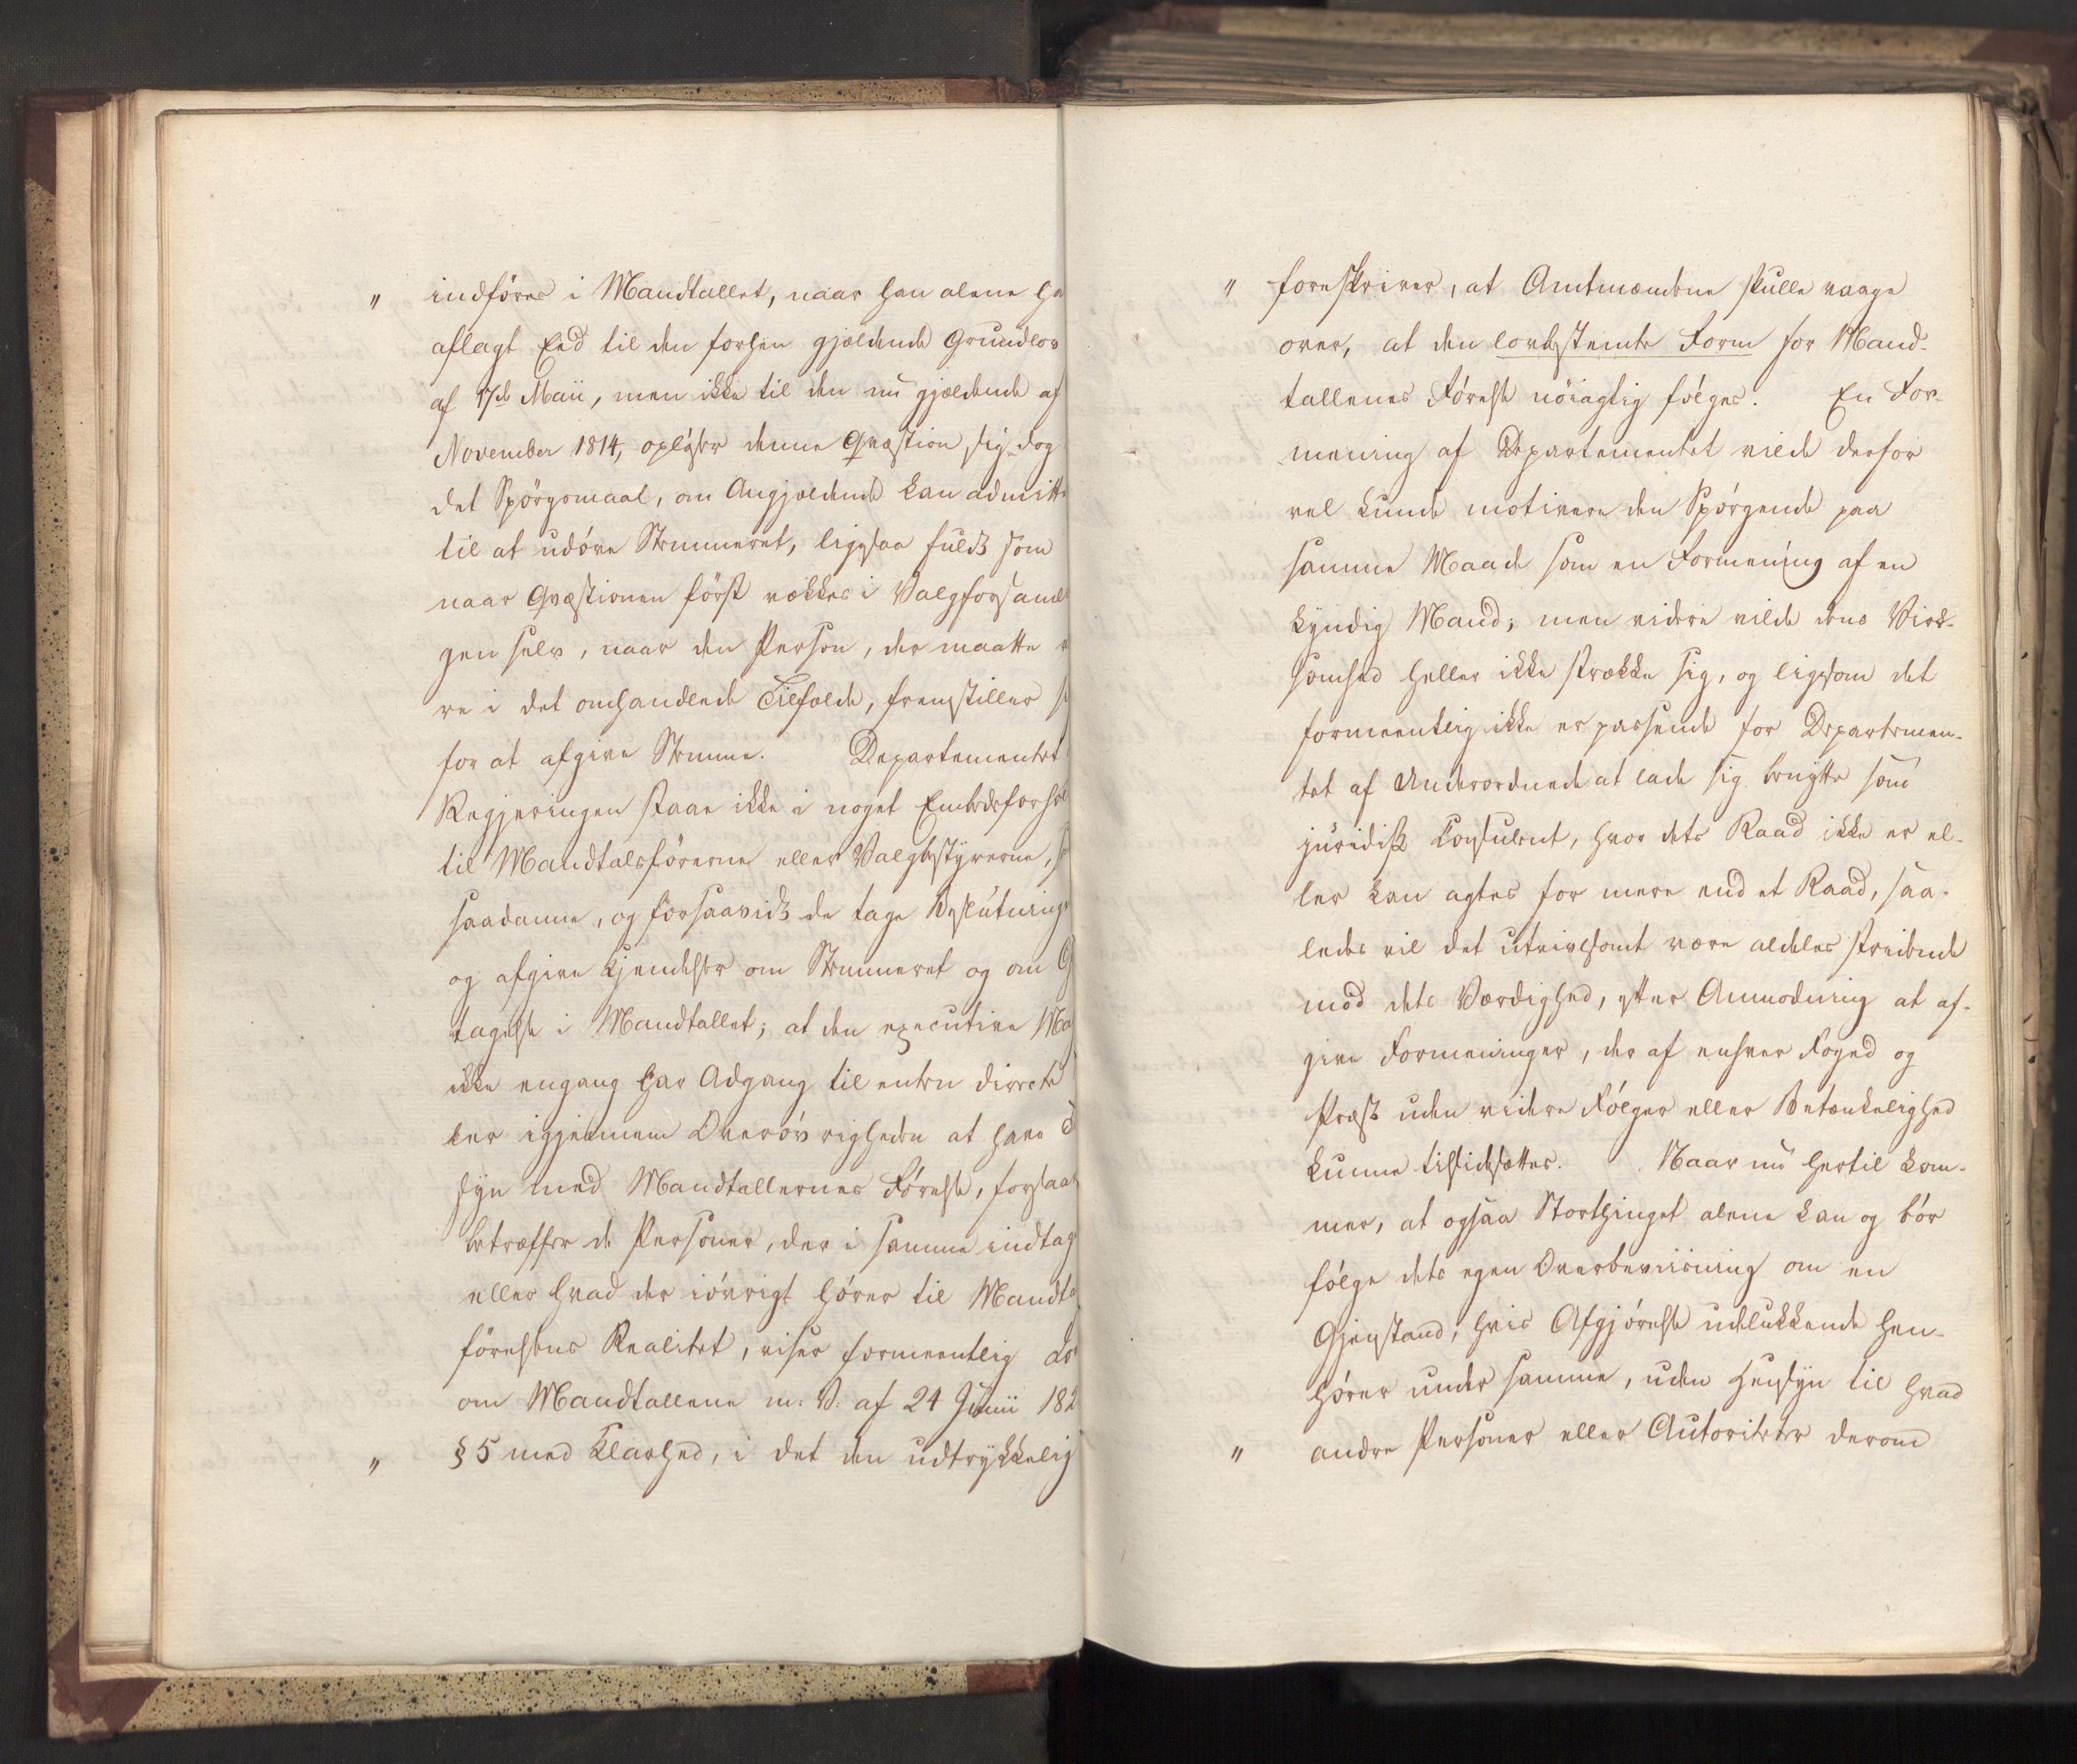 " indføres i Mandtallet, naar han alene ha
aflagt Eed til den forhen gjældende Grundlov
af 17de Maii, men ikke til den nu gjældende af
November 1814, opløser denne Qvæstion sig dog
det Spørgsmaal, om Angjældende kan admitte
til at udøve Stemmeret, ligesaa fuldt som
naar Qvæstionen først vækkes i Valgforsaml
gen selv, naar den Person, der maatte v
re i det omhandlede Tilfælde, fremstiller s
for at afgive Stemme. Departementet
Regjeringen staae ikke i noget Embedsforhol
til Mandtalsførerne eller Valgbestyrerne, s
saadanne, og forsaavidt de tage Beslutning
og afgive Kjendelser om Stemmeret og om O
tagelse i Mandtallet; at den executive Mag
ikke engang har Adgang til enten directe
ler igjennem Overøvrigheden at have
syn med Mandtallernes Førelse, forsaa
betræffer de Personer, der i samme indtag
eller hvad der iøvrigt hører til Mandta
førelsens Realitet, viser formeentlig Lo
om Mandtallene m: V: af 24 Junii 182
" § 5 med Klarhed, i det den udtrykkelig
" foreskriver, at Amtmændene skulle vaage
over, at den lovbestemte Form for Mand-
tallenes Førelse nøiagtig følges. En For-
mening af Departementet vilde derfor
vel kunde motivere den Spørgende paa
samme Maade som en Formening af en
kyndig Mand; men videre vilde dens Virk-
somhed heller ikke strække sig, og ligesom det
formeentlig ikke er passende for Departemen-
tet af Underordnede at lade sig benytte som
juridisk Consulent, hvor dets Raad ikke er el-
ler kan agtes for mere end et Raad, saa-
ledes vil det utvivlsomt være aldeles stridende
mod dets Værdighed, efter Anmodning at af-
give Formeninger, der af enhver Foged og
Præst uden videre Følger eller Betænkelighed
kunne tilsidesættes. Naar nu hertil kom-
mer, at ogsaa Storthinget alene kan og bør
følge dets egen Overbeviisning om en
Gjenstand, hvis Afgjørelse udelukkende hen-
hører under samme, uden Hensyn til hvad
" andre Personer eller Autoriteter derom